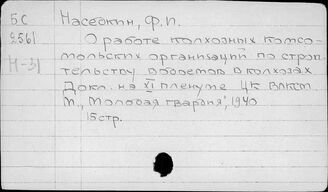 5С Наседкин, Ф.И.
9561 О работе колхозных комсо-
Н-31 мольских организаций по строи-
тельству в колхозах
Докл. на XI пленуме ЦК ВЛКСМ.
М., "Молодая гвардия", 1940
15 стр.